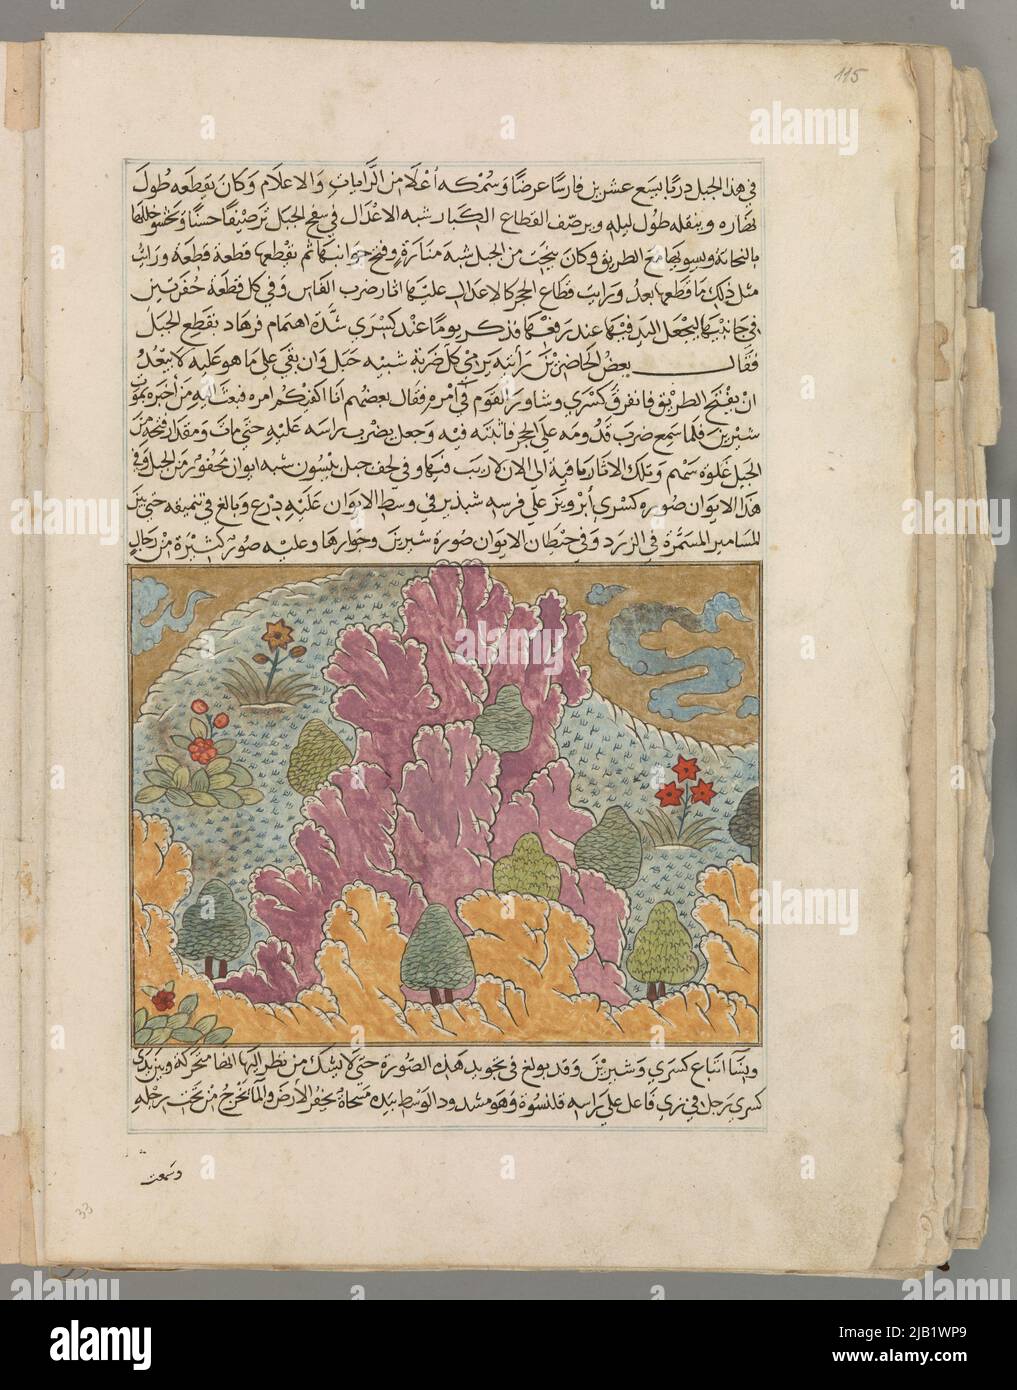 115
في هذا الجبل دربا يسع عشرين فارسا عرضا وسمكه أعلا من الرايات والاعلام وكان يقطعه طول
نهاره وينقله طول ليله ويرصف القطاع الكبار شبه الاعدال في سفح الجبل ترصيفا حسنا ويحشو خللها
بالنحاتة ويسويها مع الطريق وكان ينحت من الجبل شبه منارة وفتح جوانبها ثم يقطعها قطعة قطعة ورايت
مثل ذلك ما قطعها بعد ورايت قطاع الحجر كالاعدال عليها اثار ضرب الفاس وفي كل قطعة حفرتين
في جانبيها ليجعل اليد فيها عند رفعها فذكر يوما عند كسرى شدة اهتمام فرهاد بقطع الجبل
فقال بعض الحاضرين رأيته يرمي كل ضربة شبيه جبل وان بقي على ما هو عليه لا يبعد
ان يفتح الطريق فانفرق كسرى وشاور القوم في أمره فقال بعضهم انا اكفيكم امره فبعث اليه من أخبره بموت
شيرين فلما سمع ضرب قدومه على الحجر فاثبته فيه وجعل يضرب راسه عليه حتى مات ومقدار فتحه من
الجبل غلوة سهم وتلك الاثار باقية الى الان لا ريب فيها وفي لحف جبل بيسون شبه ايوان محفور من الجبل وفي
هذا الايوان صورة كسرى أبرويز على فرسه شبديز في وسط الايوان عليه درع وبالغ في تنميقه حتى بين
المسامير المسمرة في الزرد وفي حيطان الايوان صورة شيرين وجوارها وعليه صور كثيرة من رجال
ونسآ اتباع كسرى وشيرين وقد بولغ في تجويد هذه الصورة حتى لا يشك من نظر اليها انها متحركة وبين يدي
كسرى رجل في زي فاعل على راسه قلنسوة وهو مشدود الوسط بيده مسحاة يحفر الأرض والمآ يخرج من تحت رجليه
وسمعت
33
alamy
2JB1WP9
www.alamy.com